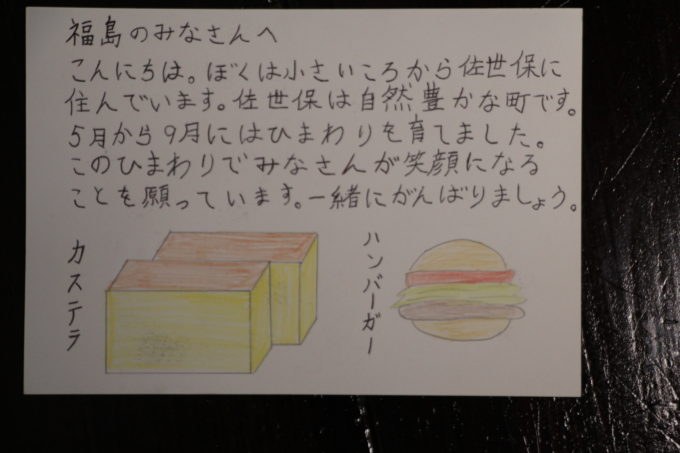 福島のみなさんへ
こんにちは。ぼくは小さいころから佐世保に
住んでいます。佐世保は自然豊かな町です。
5月から9月にはひまわりを育てました。
このひまわりでみなさんが笑顔になる
ことを願っています。一緒にがんばりましょう。
カステラ
ハンバーガー